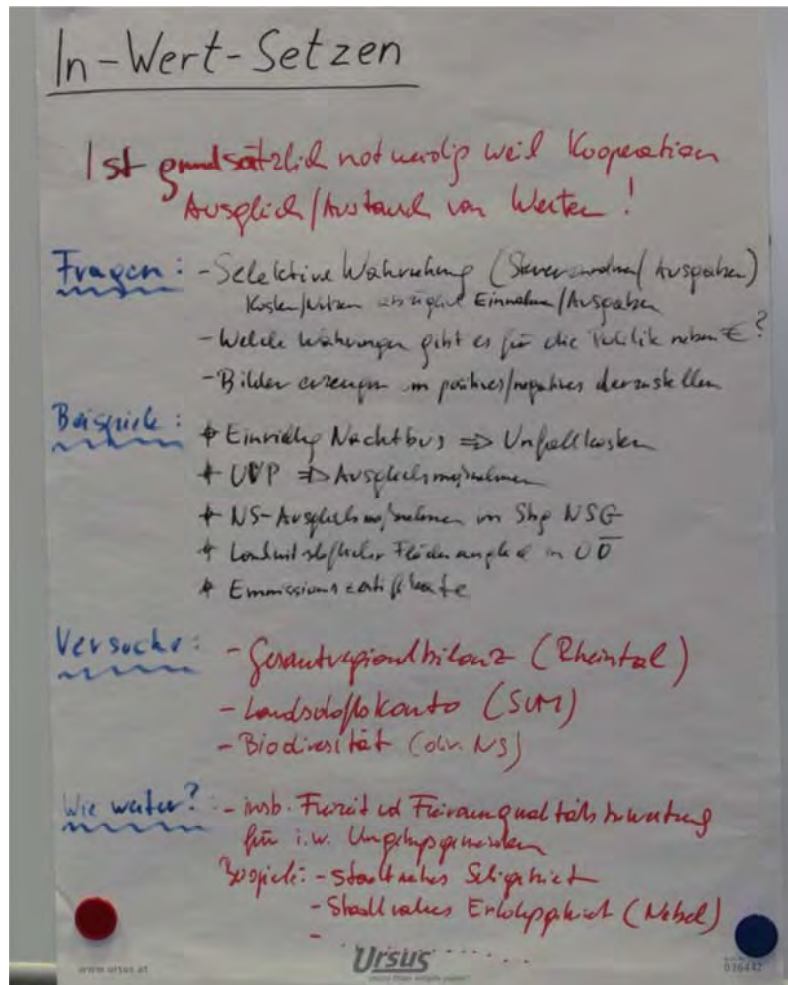 In-Wert-Setzen
Ist grundsätzlich notwendig weil Kooperation
Ausgleich/Austausch von Werten!
Fragen: - Selektive Wahrnehmung (Steuereinnahmen/Ausgaben)
Kosten/Nutzen Einnahmen/Ausgaben
- Welche Währungen gibt es für die Politik neben €?
- Bilder erzeugen um positives/negatives darzustellen
Beispiele: * Einrichtg Nachtbus => Unfallkosten
* UVP => Ausgleichsmaßnahmen
* NS-Ausgleichsmaßnahmen im Sbg NSG
* Landwirtschaftlicher Flächenausgleich in OÖ
* Emmissionszertifikate
Versuche: - Gesamtregionalbilanz (Rheintal)
- Landschaftskonto (SUM)
- Biodiversität (div. NS)
Wie weiter?: - insb. Freizeit und Freiraumqualitätsbewertung
für i.w. Umgebungsgemeinden
Beispiele: - Stadtnahes Schigebiet
- Stadtnahes Erholungsgebiet (Nebel)
- ..........
www.ursus.at
Ursus
036442